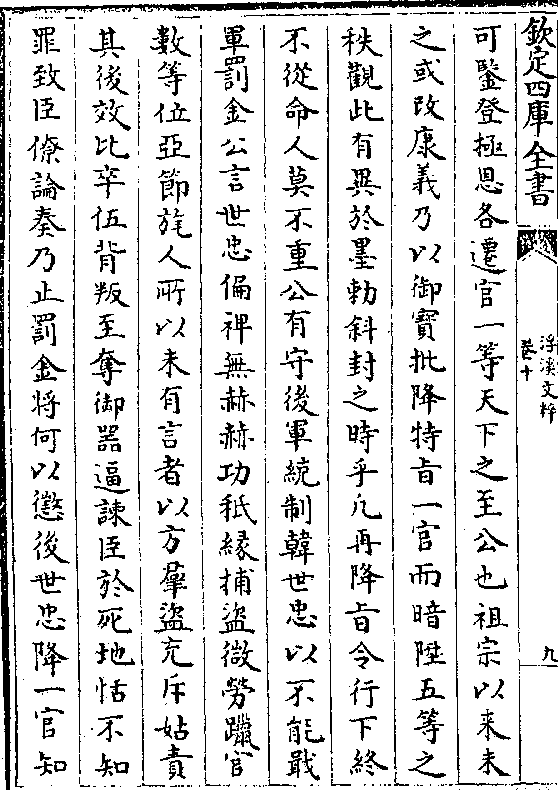 欽定四庫全書
浮溪文粹
卷十
九
可鑒登極恩各遷官一等天下之至公也祖宗以来未
之或改康義乃以御寳批降特旨一官而暗陞五等之
秩觀此有異於墨勅斜封之時乎凡再降旨令行下終
不從命人莫不重公有守後軍統制韓世忠以不能戢
軍罰金公言世忠偏裨無赫赫功秖緣捕盗微勞躐官
數等位亞節旄人所以未有言者以方羣盜充斥姑責
其後效比卒伍背叛至奪御器逼諫臣於死地恬不知
罪致臣僚論奏乃止罰金将何以懲後世忠降一官知